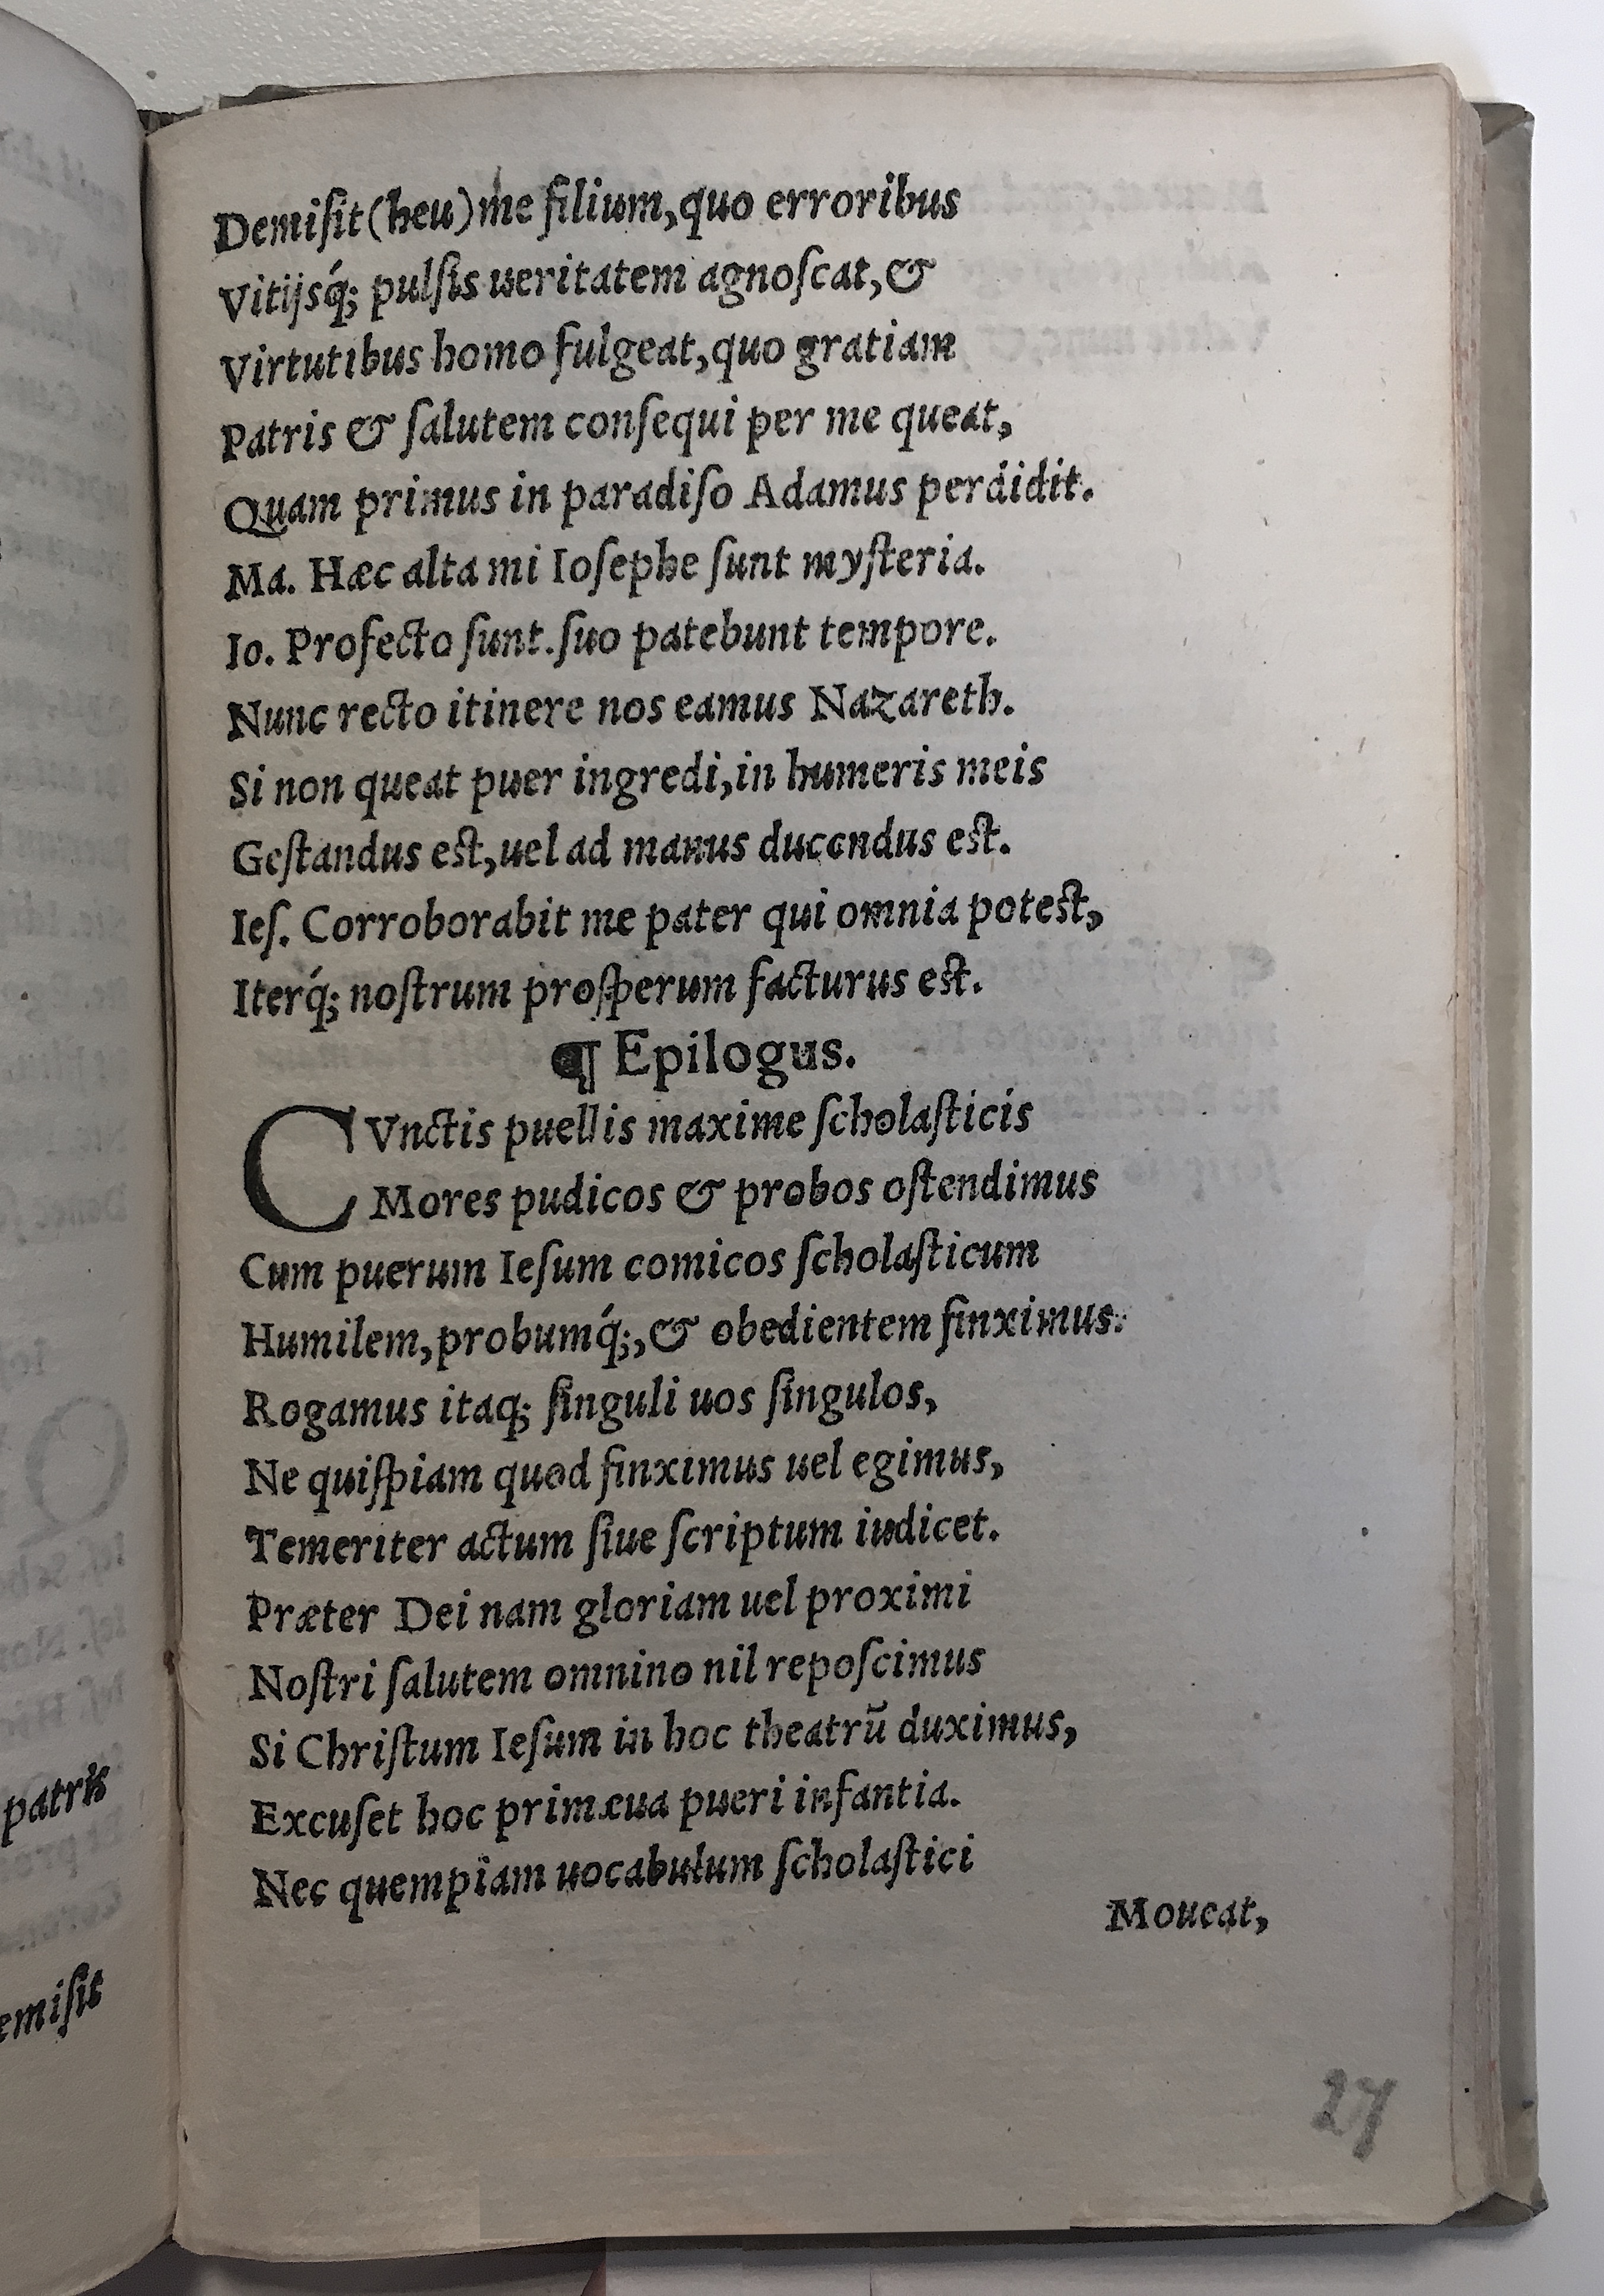 patris
emiſit
Demiſit (heu) me filium, quo erroribus
Vitijsq́; pulſis ueritatem agnoſcat, &
Virtutibus homo fulgeat, quo gratiam
Patris & ſalutem conſequi per me queat,
Quam primus in paradiſo Adamus perdidit.
Ma. Hæc alta mi Ioſephe ſunt myſteria.
Io. Profecto ſunt. ſuo patebunt tempore.
Nunc recto itinere nos eamus Nazareth.
Si non queat puer ingredi, in humeris meis
Geſtandus eſt, uel ad manus ducendus eſt.
Ieſ. Corroborabit me pater qui omnia poteſt,
Iterq́; noſtrum proſperum facturus eſt.
¶ Epilogus.
CVnctis puellis maxime ſcholaſticis
Mores pudicos & probos oſtendimus
Cum puerum Ieſum comicos ſcholaſticum
Humilem, probumq́;, & obedientem finximus.
Rogamus itaq; ſinguli uos ſingulos,
Ne quiſpiam quod finximus uel egimus,
Temeriter actum ſiue ſcriptum iudicet.
Præter Dei nam gloriam uel proximi
Noſtri ſalutem omnino nil repoſcimus
Si Chriſtum Ieſum in hoc theatrū duximus,
Excuſet hoc primæua pueri infantia.
Nec quempiam uocabulum ſcholaſtici
Moueat,
27